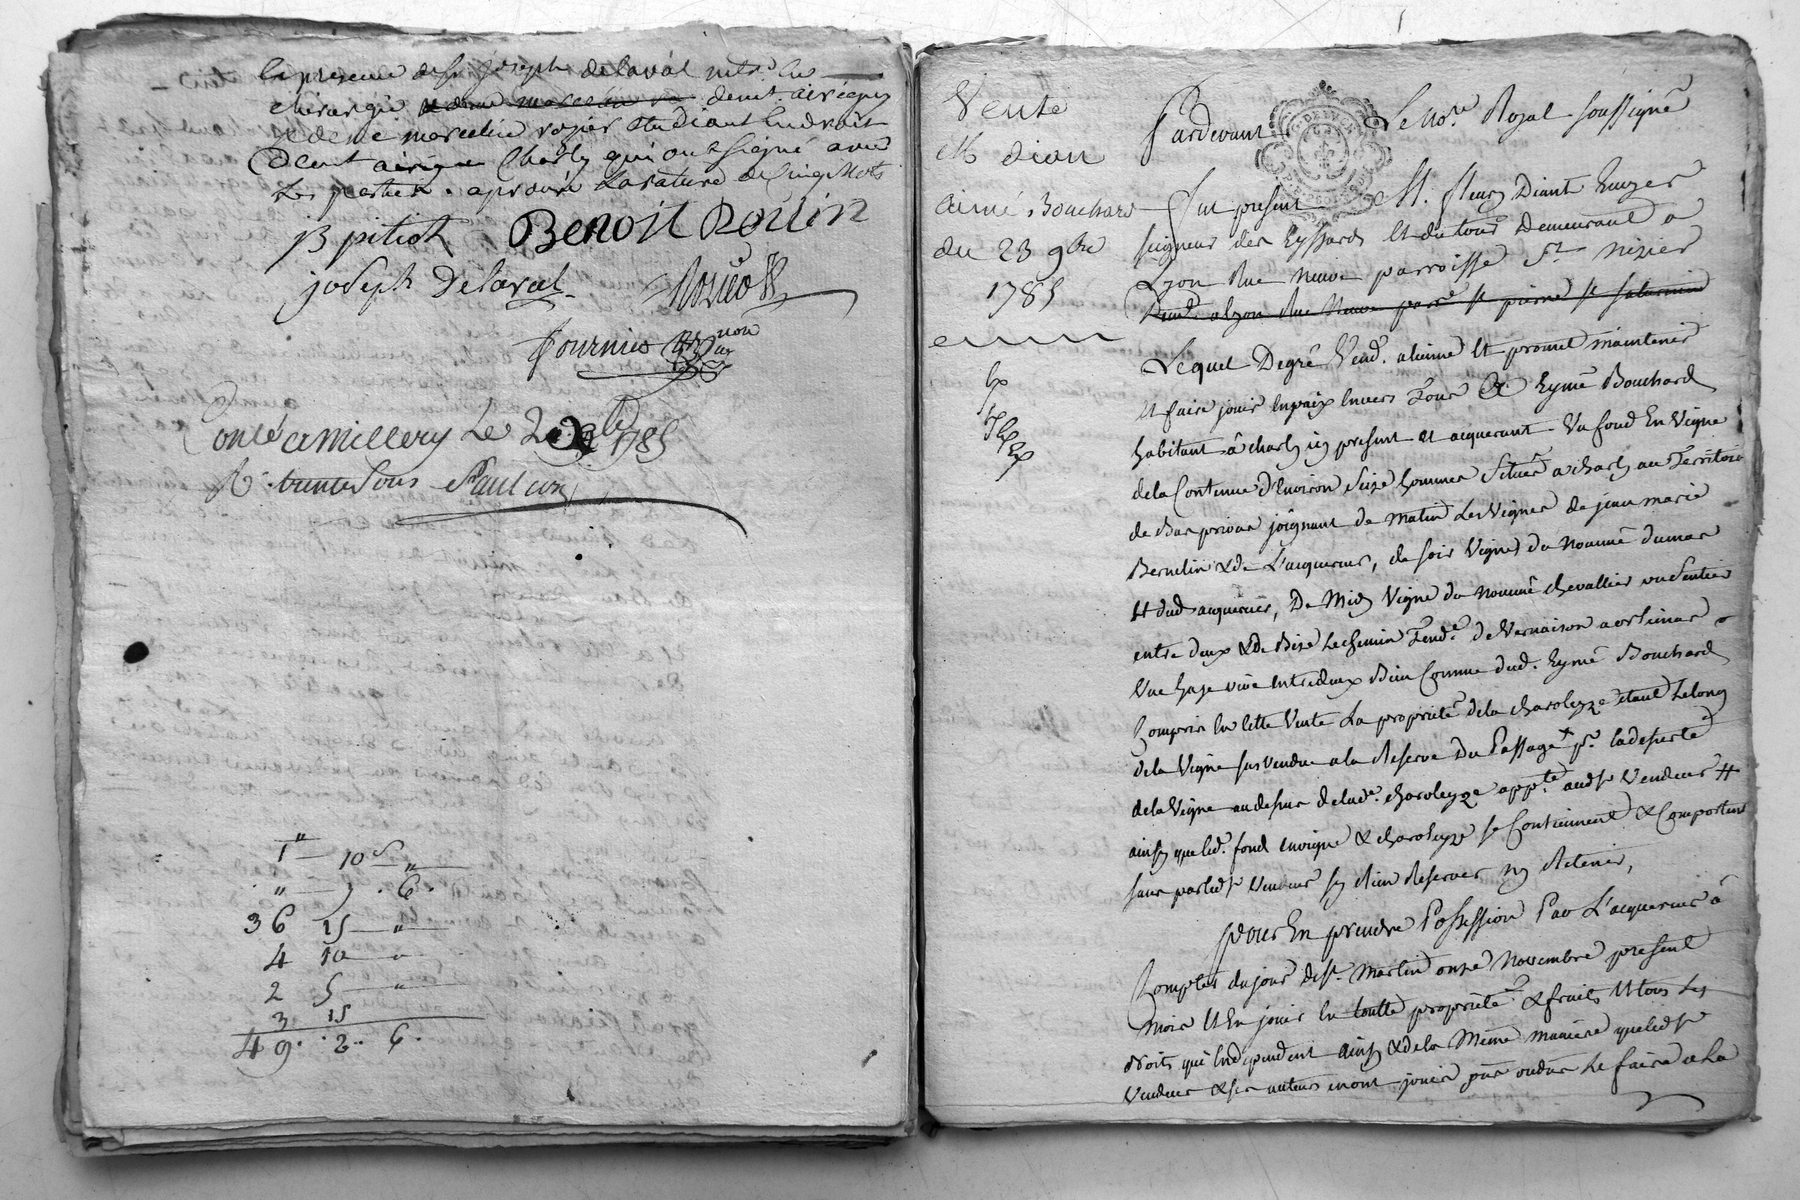 la presence de Sr joseph delaval mtre. En
chirurgie demt. a irigny
& de me marcelin rozier Etudiant En droit
Demt a irigny Charly qui ont signé avec
Les parties . aprouvé La rature de Cinq Mots
JB pitiot Benoit Rollin
joseph Delaval Rozier
fournier
Conlé a Millery Le 1785
R. trente sous Paulcon
1" 10 s "
" 7 . 6 .
36 15 "
4 10 "
2 5 "
3 15
49 . . 2 . . 6 .
Vente
M dian
aimé Bouchard
du 23 9bre
1785
Pardevant Le Nore. Royal soussigné
Fut present M. fleury Diant Ecuyer
seigneur des Essards Et du tour Demeurant a
Lyon Rue Neuve parroisse St Nizier
Demt. a Lyon Rue Neuve parse St pierre St saturnin
Lequel Degré Vend. aliene Et promet maintenir
Et faire jouir En paix Envers Tous A Eymé Bouchard
habitant â charly icy present et acquerant Un fond En Vigne
de la Contenue D'Environ Seize hommes Situés a charly au Territoire
de Bas privas joignant de Matin Les Vignes de jean marie
Bernelin & de L'acquereur, de soir Vignes du Nommé dumas
Et dud acquereur, De Midy Vigne du Nommé chevallier un Sentier
entre deux & de Bize Le chemin Tend.t de Vernaison a orlienas
Une haye vive Entredeux Bien Commue dud. Eymé Bouchard
Compris En Cette Vente La proprieté de la charoleyze etant Le long
de la Vigne sus vendue a la Reserve Du Passage pr. la deserte
de la Vigne au desus de lade. charoleyze appte aud Sr Vendeur #
ainsy que led. fond en vigne & charoleyze se Contiennent & Comportent
sans par led Sr Vendeur sy Rien Reserver ny Retenir,
pour En prendre Possession Par L'acquereur â
Compter du jour de St. Martin onze Novembre present
mois Et En jouir En toutte proprieté & fruits Et tous Les
droits qui En dependent ainsy & de la Même maniere que led Sr
Vendeur & ses auteurs en ont jouis pûs ou dus Le faire a La